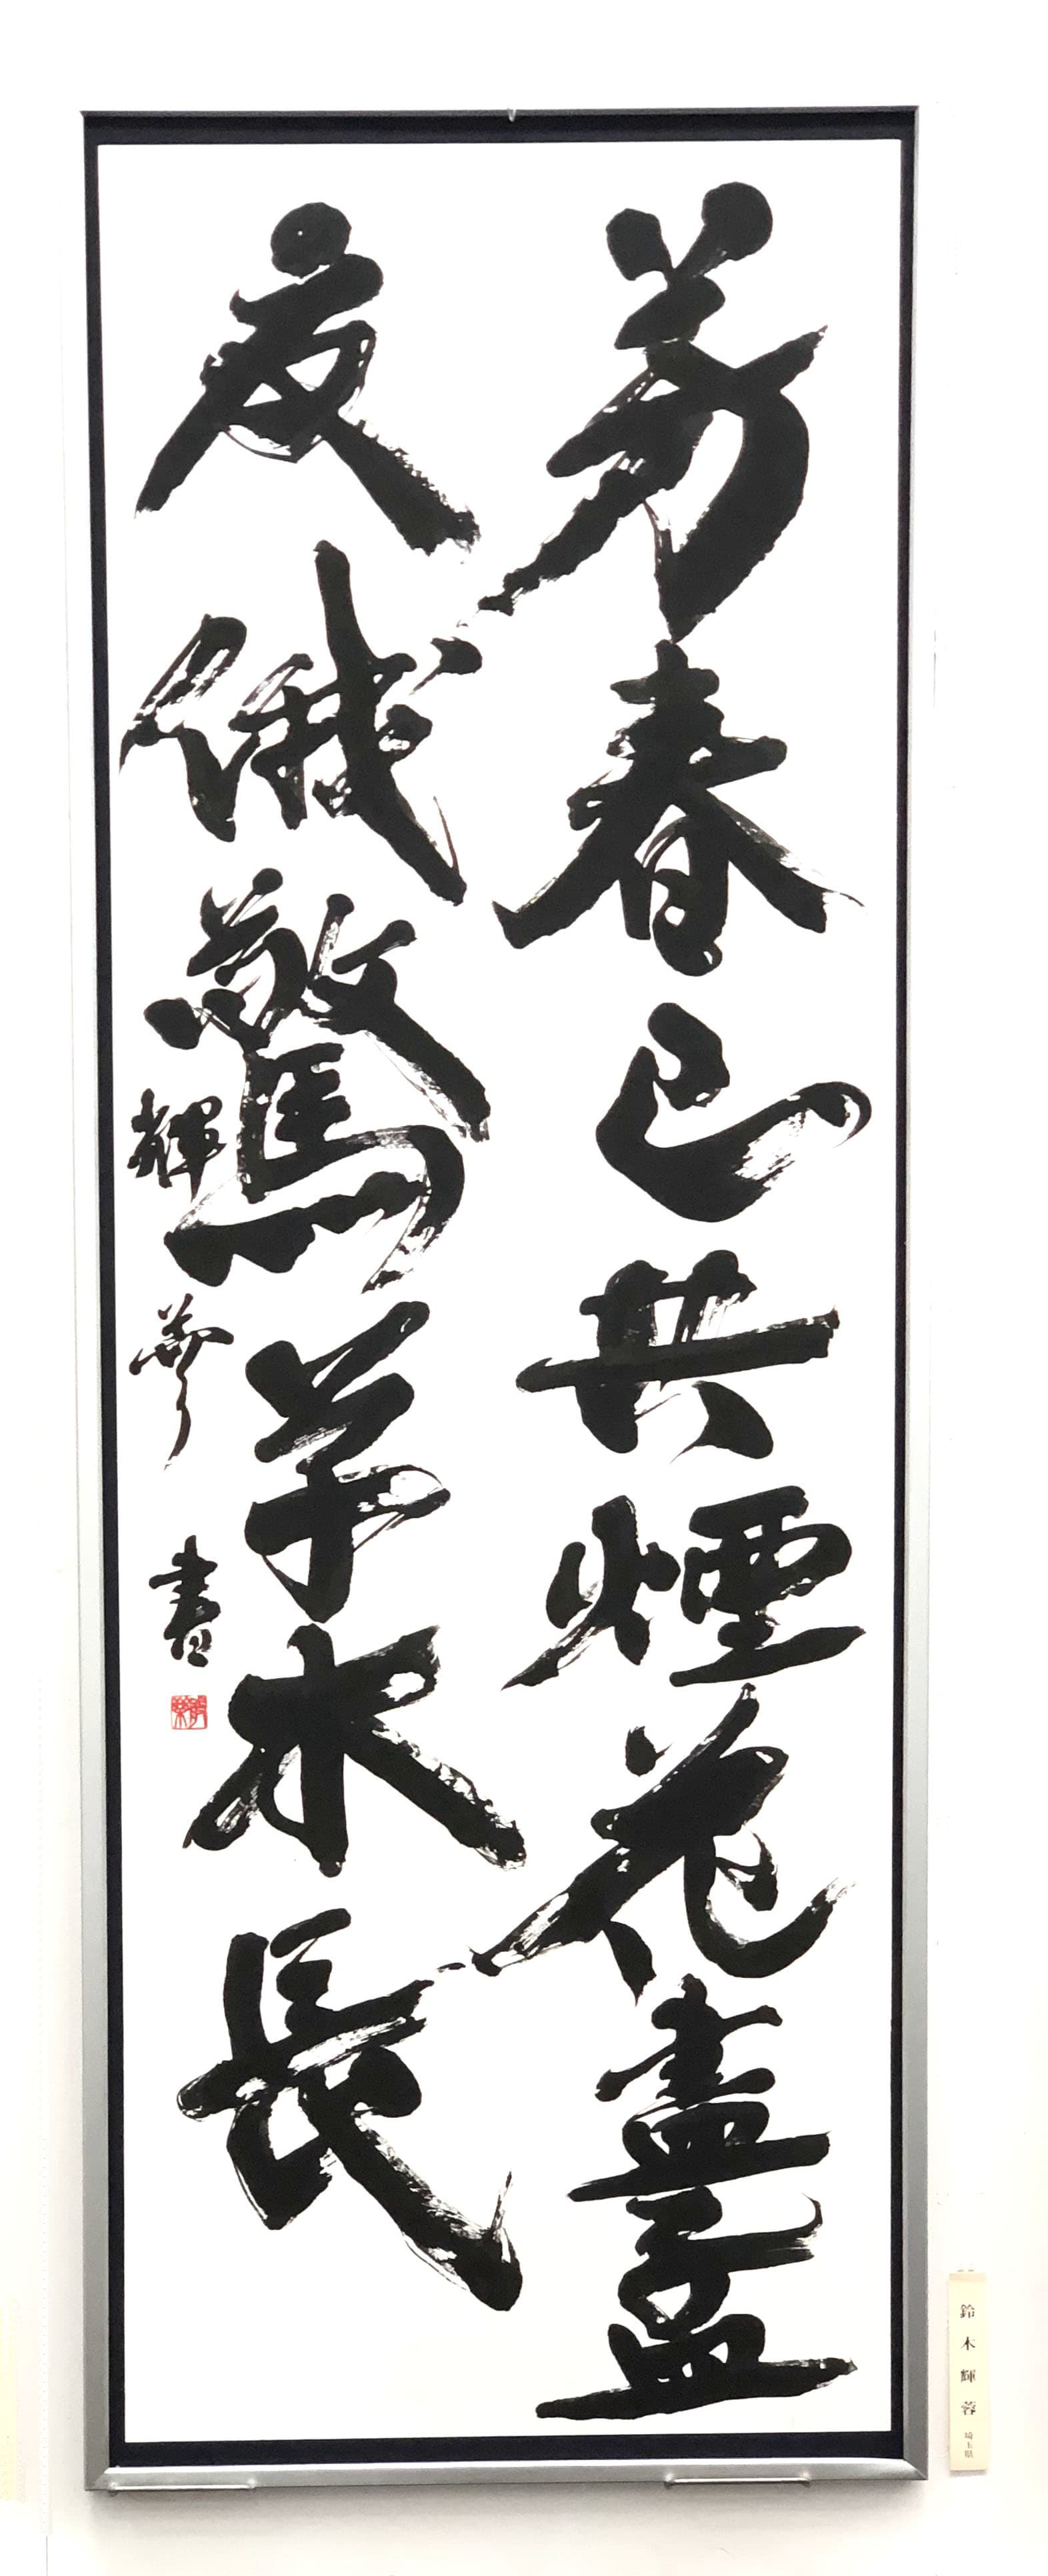 芳春已共煙花盡孟
夏俄驚草木長
輝蓉書
鈴木輝蓉 埼玉県